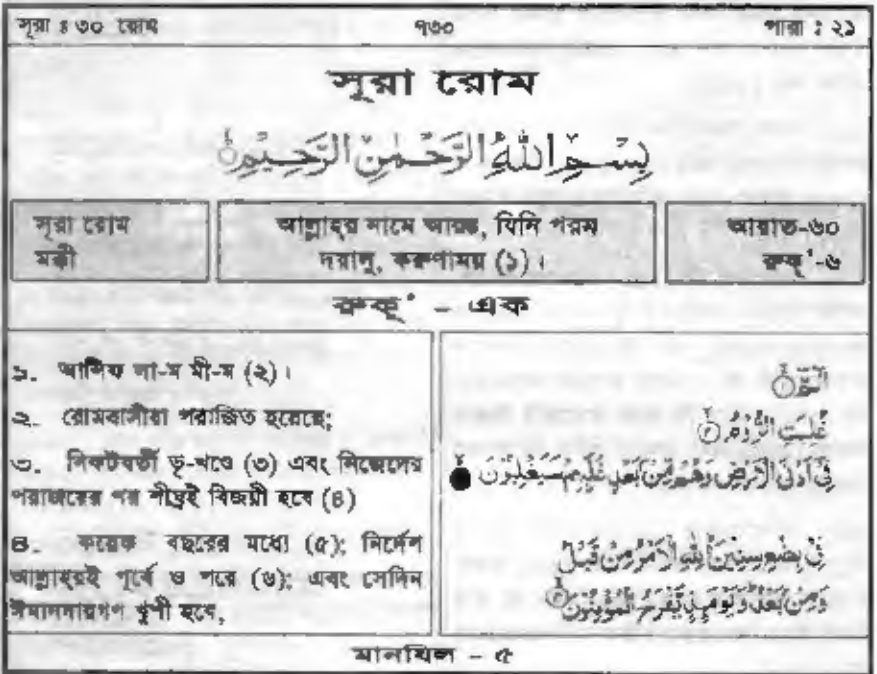 সূরা ঃ ৩০ রোম ৭৩০ পারা ঃ ২১
সূরা রোম
بِسْمِ اللهِ الرَّحْمٰنِ الرَّحِيْمِ
সূরা রোম
মক্কী
আল্লাহর নামে আরম্ভ, যিনি পরম
দয়ালু, করুণাময় (১)।
আয়াত-৬০
রুকূ'-৬
রুকূ' - এক
১. আলিফ লা-ম মী-ম (২)।
২. রোমবাসীরা পরাজিত হয়েছে;
৩. নিকটবর্তী ভূ-খণ্ডে (৩) এবং নিজেদের
পরাজয়ের পর শীঘ্রই বিজয়ী হবে (৪)
৪. কয়েক বছরের মধ্যে (৫); নির্দেশ
আল্লাহরই পূর্বে ও পরে (৬); এবং সেদিন
ঈমানদারগণ খুশী হবে,
الٓمّٓ ۝۱
غُلِبَتِ الرُّوْمُ ۝۲
فِىْٓ اَدْنَى الْاَرْضِ وَهُمْ مِّنْۢ بَعْدِ غَلَبِهِمْ سَيَغْلِبُوْنَ
فِىْ بِضْعِ سِنِيْنَ لِلّٰهِ الْاَمْرُ مِنْ قَبْلُ
وَمِنْۢ بَعْدُ وَيَوْمَئِذٍ يَّفْرَحُ الْمُؤْمِنُوْنَ ۝۴
মানযিল - ৫